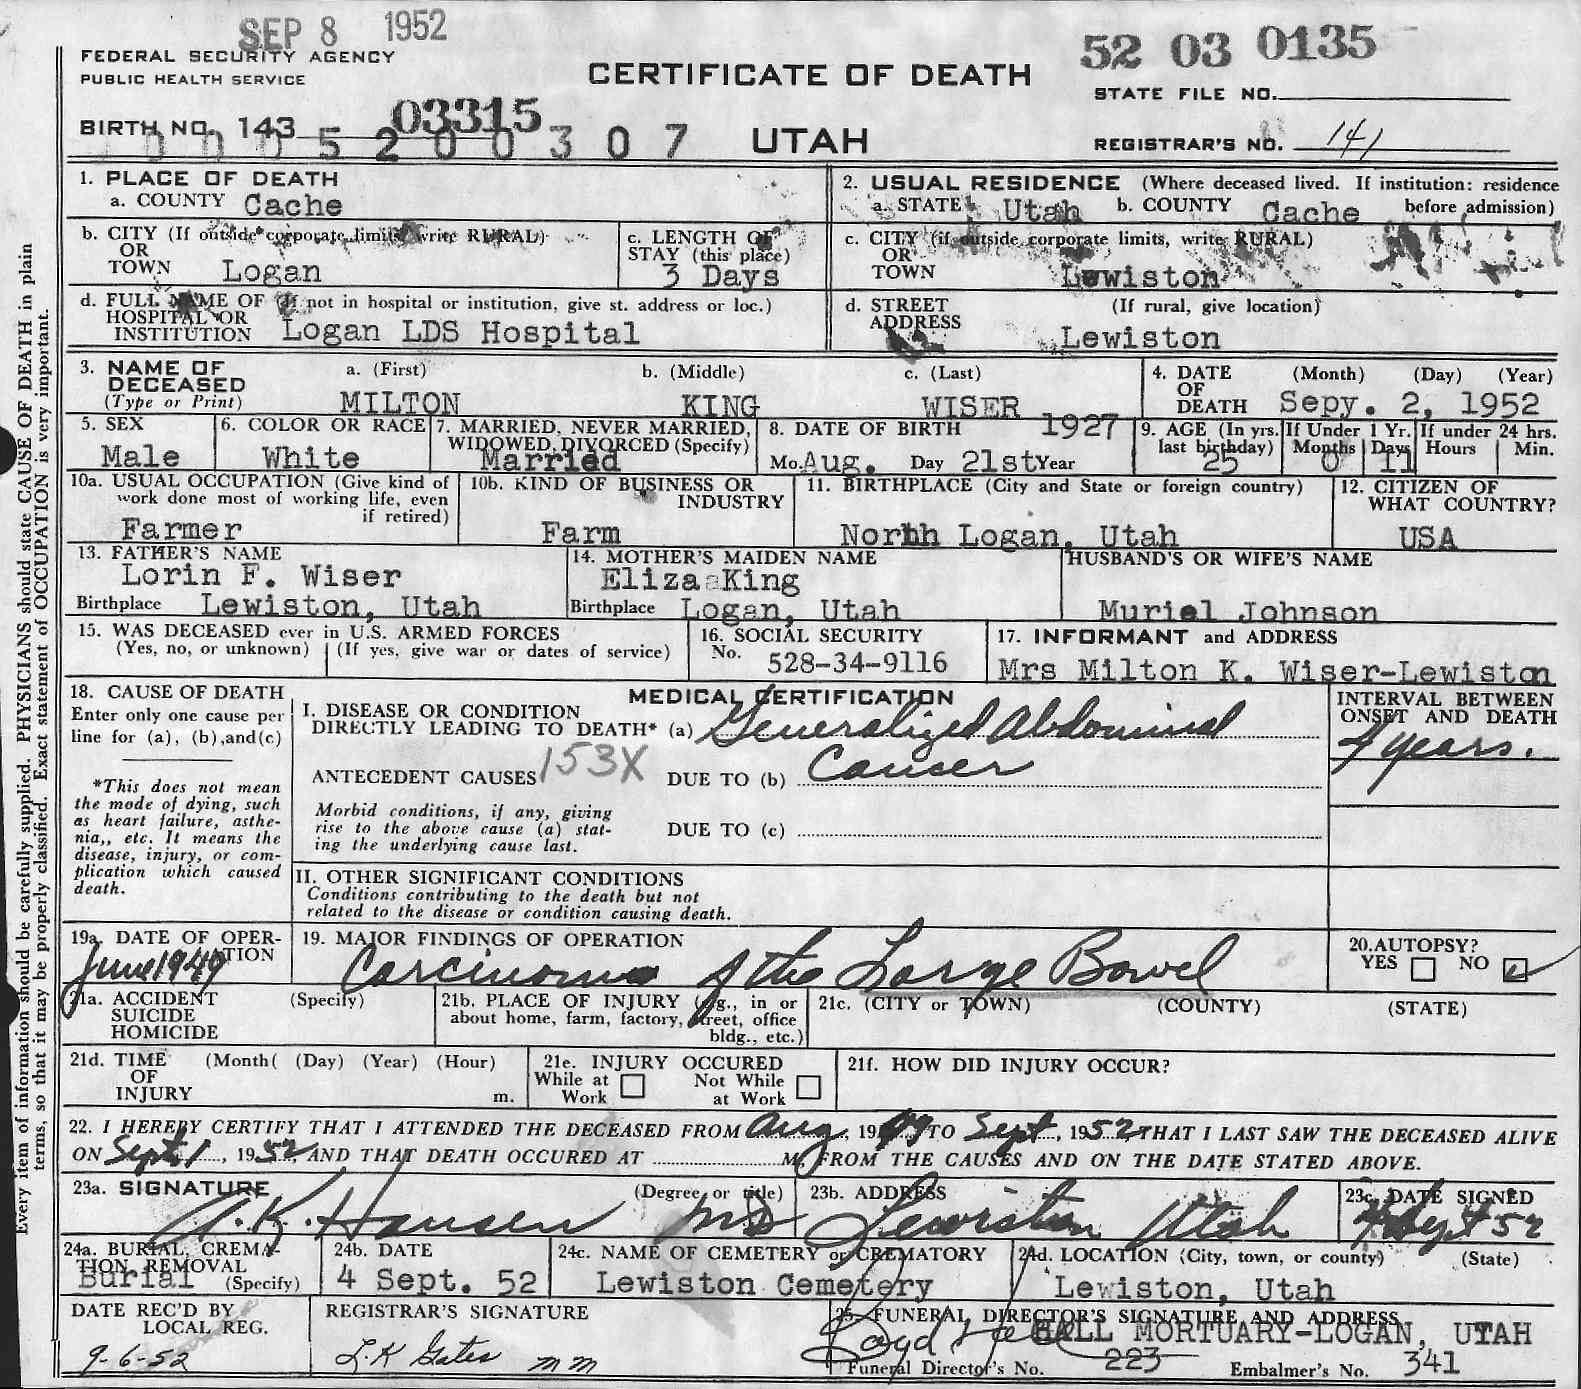 SEP 8 1952
FEDERAL SECURITY AGENCY
PUBLIC HEALTH SERVICE
CERTIFICATE OF DEATH
52 03 0135
STATE FILE NO.
BIRTH NO. 143 03315
0 0 0 5 2 0 0 3 0 7
UTAH
REGISTRAR'S NO. 141
1. PLACE OF DEATH
a. COUNTY Cache
2. USUAL RESIDENCE (Where deceased lived. If institution: residence before admission)
a. STATE Utah b. COUNTY Cache
b. CITY (If outside corporate limits, write RURAL)
OR
TOWN Logan
c. LENGTH OF
STAY (this place)
3 Days
c. CITY (if outside corporate limits, write RURAL)
OR
TOWN Lewiston
d. FULL NAME OF (If not in hospital or institution, give st. address or loc.)
HOSPITAL OR
INSTITUTION Logan LDS Hospital
d. STREET (If rural, give location)
ADDRESS
Lewiston
3. NAME OF
DECEASED
(Type or Print)
a. (First) b. (Middle) c. (Last)
MILTON KING WISER
4. DATE (Month) (Day) (Year)
OF
DEATH Sepy. 2, 1952
5. SEX
Male
6. COLOR OR RACE
White
7. MARRIED, NEVER MARRIED,
WIDOWED, DIVORCED (Specify)
Married
8. DATE OF BIRTH 1927
Mo. Aug. Day 21st Year
9. AGE (In yrs. last birthday)
25
If Under 1 Yr.
Months Days
0 11
If under 24 hrs.
Hours Min.
10a. USUAL OCCUPATION (Give kind of
work done most of working life, even
if retired)
Farmer
10b. KIND OF BUSINESS OR
INDUSTRY
Farm
11. BIRTHPLACE (City and State or foreign country)
North Logan, Utah
12. CITIZEN OF
WHAT COUNTRY?
USA
13. FATHER'S NAME
Lorin F. Wiser
Birthplace Lewiston, Utah
14. MOTHER'S MAIDEN NAME
Eliza King
Birthplace Logan, Utah
HUSBAND'S OR WIFE'S NAME
Muriel Johnson
15. WAS DECEASED ever in U.S. ARMED FORCES
(Yes, no, or unknown) (If yes, give war or dates of service)
16. SOCIAL SECURITY
No. 528-34-9116
17. INFORMANT and ADDRESS
Mrs Milton K. Wiser-Lewiston
18. CAUSE OF DEATH
Enter only one cause per
line for (a), (b), and (c)
*This does not mean
the mode of dying, such
as heart failure, asthe-
nia,, etc. It means the
disease, injury, or com-
plication which caused
death.
MEDICAL CERTIFICATION
I. DISEASE OR CONDITION
DIRECTLY LEADING TO DEATH* (a) Generalized Abdominal
ANTECEDENT CAUSES 153X DUE TO (b) Cancer
Morbid conditions, if any, giving
rise to the above cause (a) stat-
ing the underlying cause last.
DUE TO (c)
INTERVAL BETWEEN
ONSET AND DEATH
4 years.
II. OTHER SIGNIFICANT CONDITIONS
Conditions contributing to the death but not
related to the disease or condition causing death.
19a. DATE OF OPER-
ATION
June 1949
19. MAJOR FINDINGS OF OPERATION
Carcinoma of the Large Bowel
20. AUTOPSY?
YES NO
21a. ACCIDENT (Specify)
SUICIDE
HOMICIDE
21b. PLACE OF INJURY (e.g., in or
about home, farm, factory, street, office
bldg., etc.)
21c. (CITY or TOWN) (COUNTY) (STATE)
21d. TIME (Month( (Day) (Year) (Hour)
OF
INJURY m.
21e. INJURY OCCURED
While at Work Not While at Work
21f. HOW DID INJURY OCCUR?
22. I HEREBY CERTIFY THAT I ATTENDED THE DECEASED FROM Aug, 1949 TO Sept, 1952 THAT I LAST SAW THE DECEASED ALIVE
ON Sept 1, 1952, AND THAT DEATH OCCURED AT M, FROM THE CAUSES AND ON THE DATE STATED ABOVE.
23a. SIGNATURE (Degree or title)
A.K. Hansen MD
23b. ADDRESS
Lewiston Utah
23c. DATE SIGNED
Sept 52
24a. BURIAL, CREMA-
TION REMOVAL
Burial (Specify)
24b. DATE
4 Sept. 52
24c. NAME OF CEMETERY or CREMATORY
Lewiston Cemetery
24d. LOCATION (City, town, or county) (State)
Lewiston, Utah
DATE REC'D BY
LOCAL REG.
9-6-52
REGISTRAR'S SIGNATURE
L.K Gates mm
25. FUNERAL DIRECTOR'S SIGNATURE AND ADDRESS
HALL MORTUARY-LOGAN, UTAH
Funeral Director's No. 223 Embalmer's No. 341
Every item of information should be carefully supplied. PHYSICIANS should state CAUSE OF DEATH in plain
terms, so that it may be properly classified. Exact statement of OCCUPATION is very important.